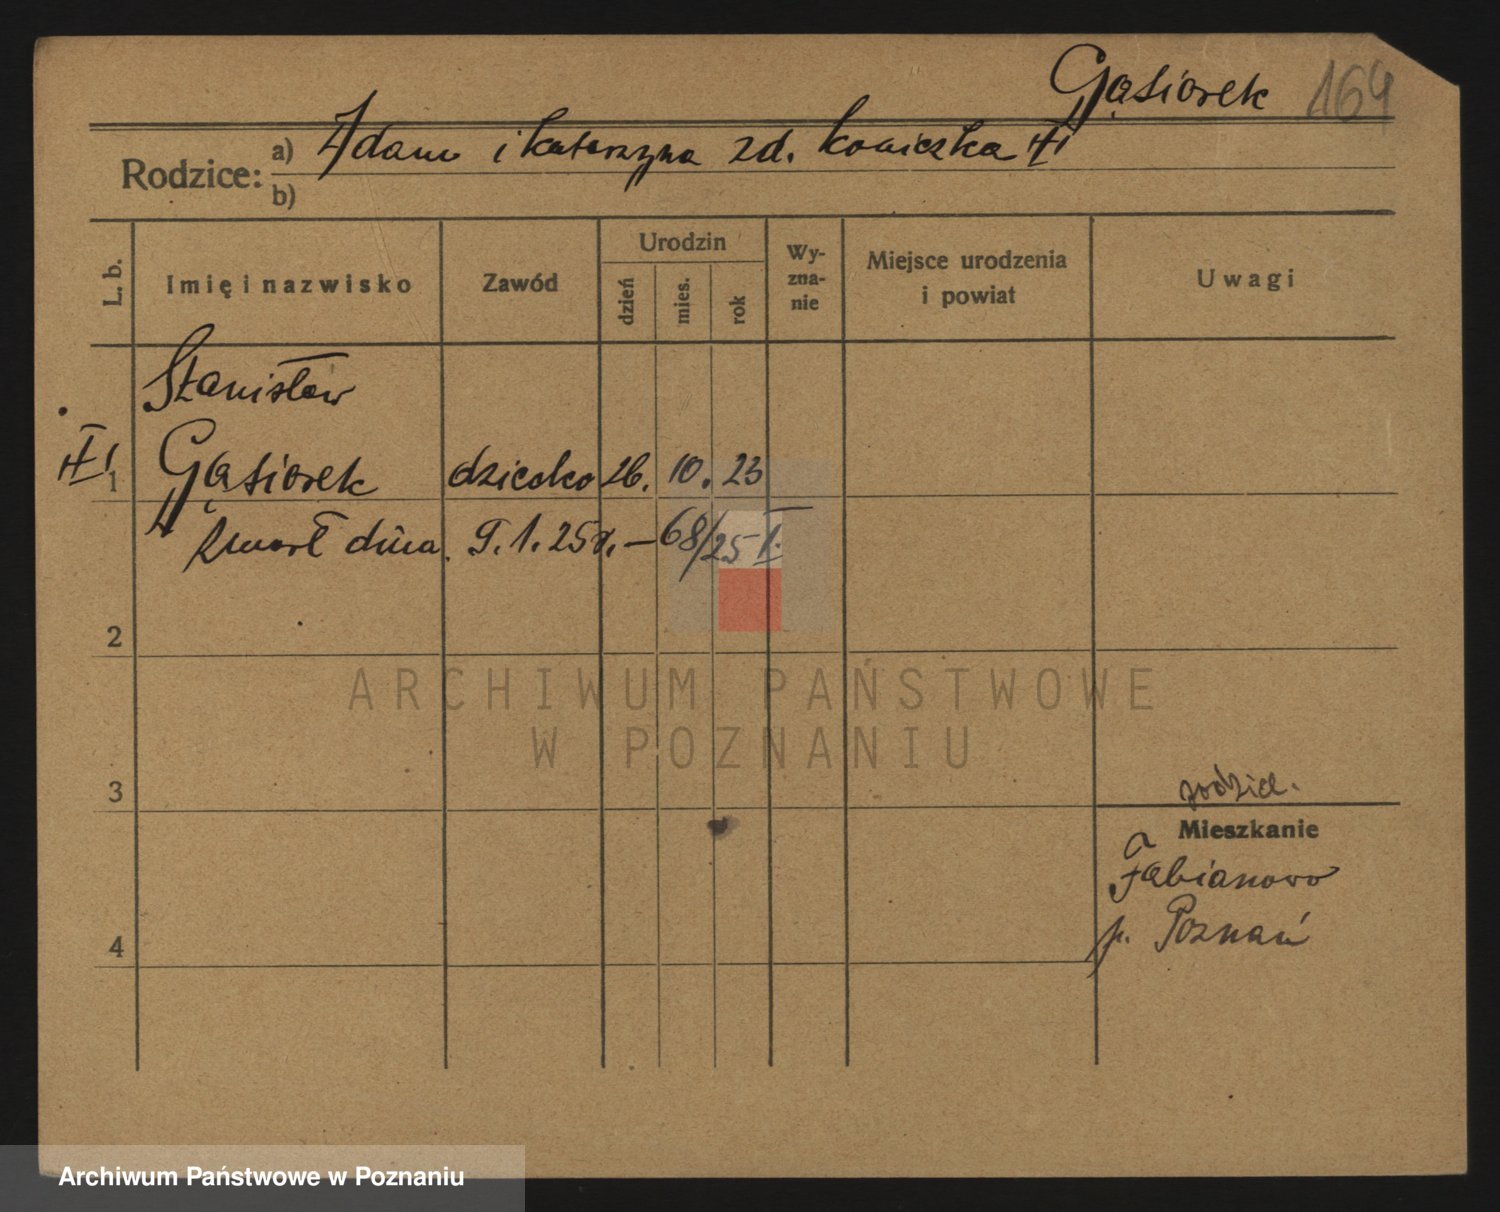 Gąsiorek 164
Rodzice: a) Adam i Katarzyna zd. Konieczka
b)
L. b. Imię i nazwisko Zawód Urodzin dzień mies. rok Wyznanie Miejsce urodzenia i powiat Uwagi
Stanisław
1 Gąsiorek dziecko 26. 10. 23
zmarł dnia 9.1.25 r. — 68/25 I.
2
ARCHIWUM PAŃSTWOWE
W POZNANIU
3
rodzice.
Mieszkanie
Fabianowo
4 p. Poznań
Archiwum Państwowe w Poznaniu